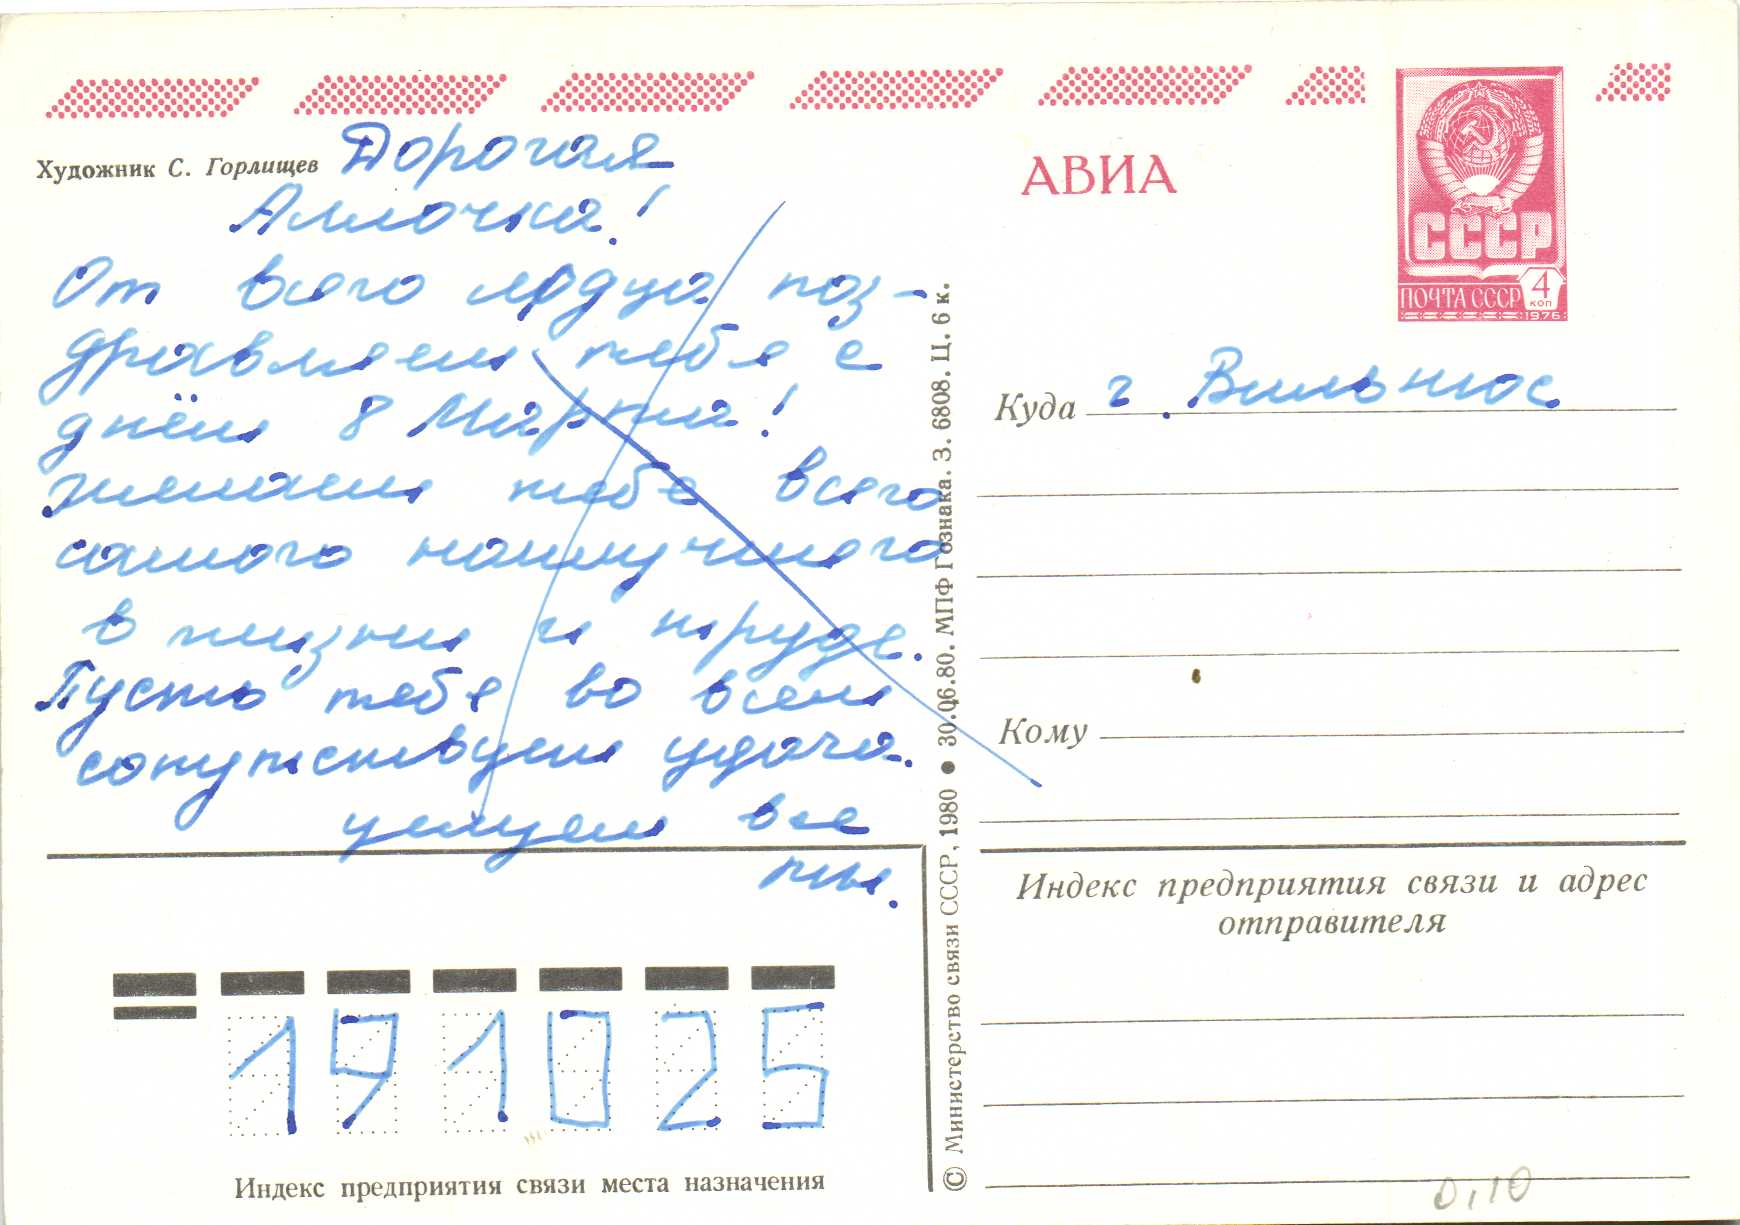 Художник С. Горлищев
Дорогая
Аллочка!
От всего сердца поз-
дравляем тебя с
днём 8 Марта!
желаем тебе всего
самого наилучшего
в жизни и труде.
Пусть тебе во всем
сопутствует удача.
целуем все
мы.
191025
Индекс предприятия связи места назначения
© Министерство связи СССР, 1980 ● 30.06.80. МПФ Гознака. З. 6808. Ц. 6 к.
АВИА
СССР
ПОЧТА СССР 4 КОП
1976
Куда г. Вильнюс
Кому
Индекс предприятия связи и адрес
отправителя
0,10